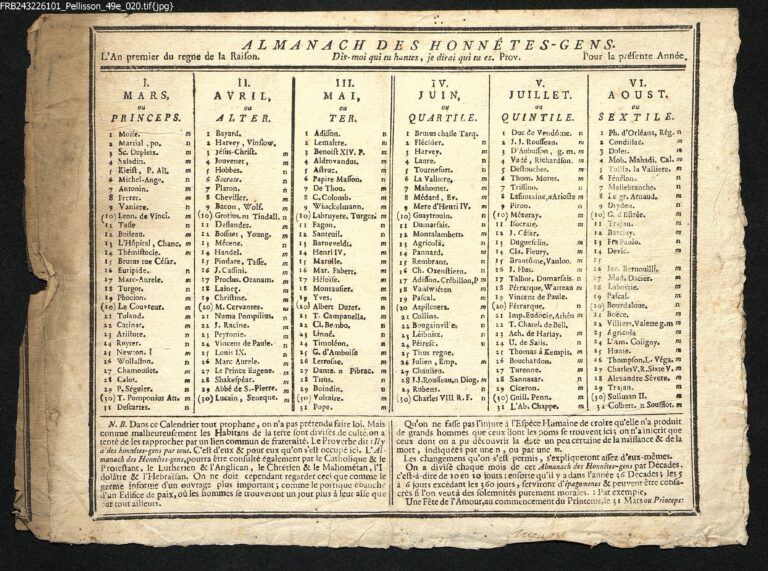 FRB243226101_Pellisson_49e_020.tif{jpg}
ALMANACH DES HONNÊTES-GENS.
L'An premier du regne de la Raison. Dis-moi qui tu hantes, je dirai qui tu es. Prov. Pour la présente Année.
I.
MARS,
ou
PRINCEPS.
1 Moïse. m
2 Martial, po. n
3 Sc. Dupleix. m
4 Saladin. m
5 Kleist, P. All. m
6 Michel-Ange. n
7 Antonin. m
8 Freret. m
9 Vaniere. n
(10) Léon. de Vinci. n
11 Tasse n
12 Boileau. m
13 L'Hôpital, Chanc. m
14 Thémistocle. m
15 Brutus tue César.
16 Euripide. n
17 Marc-Aurele. m
18 Turgot. m
19 Phocion m
(20) Le Couvreur. m
21 Toland. m
22 Catinat. m
23 Aristote. n
24 Royer. m
25 Newton. m
26 Wollaston. n
27 Chamousset. m
28 Calot. m
29 P. Séguier. m
(30) T. Pomponius Att. m
31 Descartes. n
II.
AVRIL,
ou
ALTER.
1 Bayard.
2 Harvey, Vinslow.
3 Jésus-Christ. m
4 Jouvenet, m
5 Hobbes. n
6 Socrate. n
7 Platon. n
8 Cheviller. m
9 Bacon, Wolf.
(10) Grotius. m Tindall. n
11 Deslandes. m
12 Bossuet, Young. m
13 Mécene. n
14 Handel. m
15 Pindare, Tasse. m
16 J. Cassini. m
17 Proclus. Ozanam. m
18 Lainez. m
19 Christine. m
(20) M. Cervantes. m
21 Numa Pompilius. n
22 J. Racine. m
23 Peyronie. m
24 Vincent de Paule. n
25 Louis IX. n
26 Marc Aurele. n
27 Le Prince Eugene. m
28 Shakespéar. m
29 Abbé de S.-Pierre. m
(30) Lucain, Seneque. m
III.
MAI,
ou
TER.
1 Adisson. n
2 Lemaître. n
3 Benoît XIV. P. m
4 Aldrovandus. m
5 Astruc. m
6 Papire Masson. n
7 De Thou. m
8 C. Colomb. m
9 Winckelmann. m
(10) Labruyere, Turgot. m
11 Fagon. n
12 Santeuil. n
13 Barneveldt. m
14 Henri IV. m
15 Marolle. m
16 Mar. Fabert. m
17 Héloïse. m
18 Montausier. m
19 Yves. m
(20) Albert Duret. n
21 T. Campanella. m
22 Cl. Bembo. n
23 Linné. n
24 Timoléon. m
25 G. d'Amboise m
26 Letrosne. m
27 Dante. n Pibrac. m
28 Titus. n
29 Boindin. n
(30) Voltaire. m
31 Pope. m
IV.
JUIN,
ou
QUARTILE.
1 Brutus chasse Tarq.
2 Fléchier. n
3 Harvey. m
4 Laure. n
5 Tournefort. n
6 La Valliere. m
7 Mahomet. m
8 Médard, Ev. m
9 Mere d'Henri IV. m
(10) Guaytrouin. n
11 Dumarsais. m
12 Montalembert. m
13 Agricola. n
14 Pannard. m
15 Rembrant. n
16 Ch. Oxenstiern. n
17 Adisson. Crébillon, P m
18 Vanswiéten m
19 Pascal. n
(20) Aspilcueta. m
21 Collins. n
22 Bougainville. m
23 Léibnitz. n
24 Péiresc. m
25 Titus regne.
26 Julien, Emp. m
27 Chaulieu. m
28 J.J. Rousseau. n Diog.
29 Rubens. n
(30) Charles VIII R. F. n
V.
JUILLET.
ou
QUINTILE.
1 Duc de Vendôme. n
2 J. J. Rousseau. m
3 D'Aubusson, g. m. m
4 Vadé, Richardson. m
5 Destouches. m
6 Thom. Morus. m
7 Trissino. n
8 Lafontaine, n Arioste m
9 Piron. n
(10) Mézeray. m
11 Isocrate. n
12 J. César. n
13 Duguesclin. m
14 Cla. Fleury. m
15 Brantôme, Vanloo. m
16 J. Hus. m
17 Talbot, Dumarsais. n
18 Pétrarque, Watteau m
19 Vincent de Paule. m
(20) Pétrarque. n
21 Imp. Eudocie, Athén m
22 T. Chatel. de Bell. m
23 Ach. de Harlay. m
24 U. de Salis. m
25 Thomas à Kempis. m
26 Bouchardon. m
27 Turenne. m
28 Sannazar. n
29 Ciceron. m
(30) Guill. Penn. m
31 L'Ab. Chappe. m
VI.
AOUST.
ou
SEXTILE.
1 Ph. d'Orléans, Rég. n
2 Condillac. m
3 Dolet. m
4 Moh. Mahadi. Cal. m
5 Tullia. la Valliere. m
6 Fénélon. m
7 Mallebranche. n
8 Le gr. Arnaud. m
9 Dryden. n
(10) G. d'Estrée. m
11 Trajan. m
12 Barclay. m
13 Fra Paolo. n
14 Devic. m
15 m
16 Jac. Bernouilli. m
17 Mad. Dacier. m
18 Laboetie. m
19 Pascal. m
(20) Bourdaloue. n
21 Boëce. m
22 Villiers, Valette g.m m
23 Agricola m
24 L'Am. Coligny. m
25 Hume. m
26 Thompson. L. Véga. m
27 Charles V. R. Sixte V. m
28 Alexandre Sévere. m
29 Trajan. m
(30) Soliman II. m
31 Colbert. n Soufflot. m
N. B. Dans ce Calendrier tout prophane, on n'a pas prétendu faire loi. Mais
comme malheureusement les Habitans de la terre sont divisés de culte, on a
tenté de les rapprocher par un lien commun de fraternité. Le Proverbe dit : Il y
a des honnêtes-gens par tout. C'est d'eux & pour eux qu'on s'est occupé ici. L'Al-
manach des Honnêtes-gens, pourra être consulté également par le Catholique & le
Protestant, le Luthérien & l'Anglican, le Chrétien & le Mahométan, l'I-
dolâtre & l'Hebraïsan. On ne doit cependant regarder ceci que comme le
germe informe d'un ouvrage plus important; comme le portique ébauché
d'un Edifice de paix, où les hommes se trouveront un jour plus à leur aise que
par tout ailleurs.
Qu'on ne fasse pas l'injure à l'Espéce Humaine de croire qu'elle n'a produit
de grands hommes que ceux dont les noms se trouvent ici : on n'a inscrit que
ceux dont on a pu découvrir la date un peu certaine de la naissance & de la
mort, indiquées par une n, ou par une m.
Les changemens qu'on s'est permis, s'expliqueront assez d'eux-mêmes.
On a divisé chaque mois de cet Almanach des Honnêtes-gens par Décades,
c'est-à-dire de 10 en 10 jours : ensorte qu'il y a dans l'année 36 Décades; les 5
à 6 jours excédant les 360 jours, serviront d'épagomenes & peuvent être consa-
crés si l'on veut à des solemnités purement morales. : Par exemple,
Une Fête de l'Amour, au commencement du Printems, le 31 Mars ou Princeps: